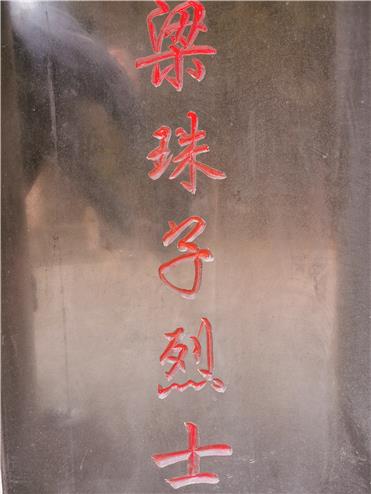 梁珠子烈士